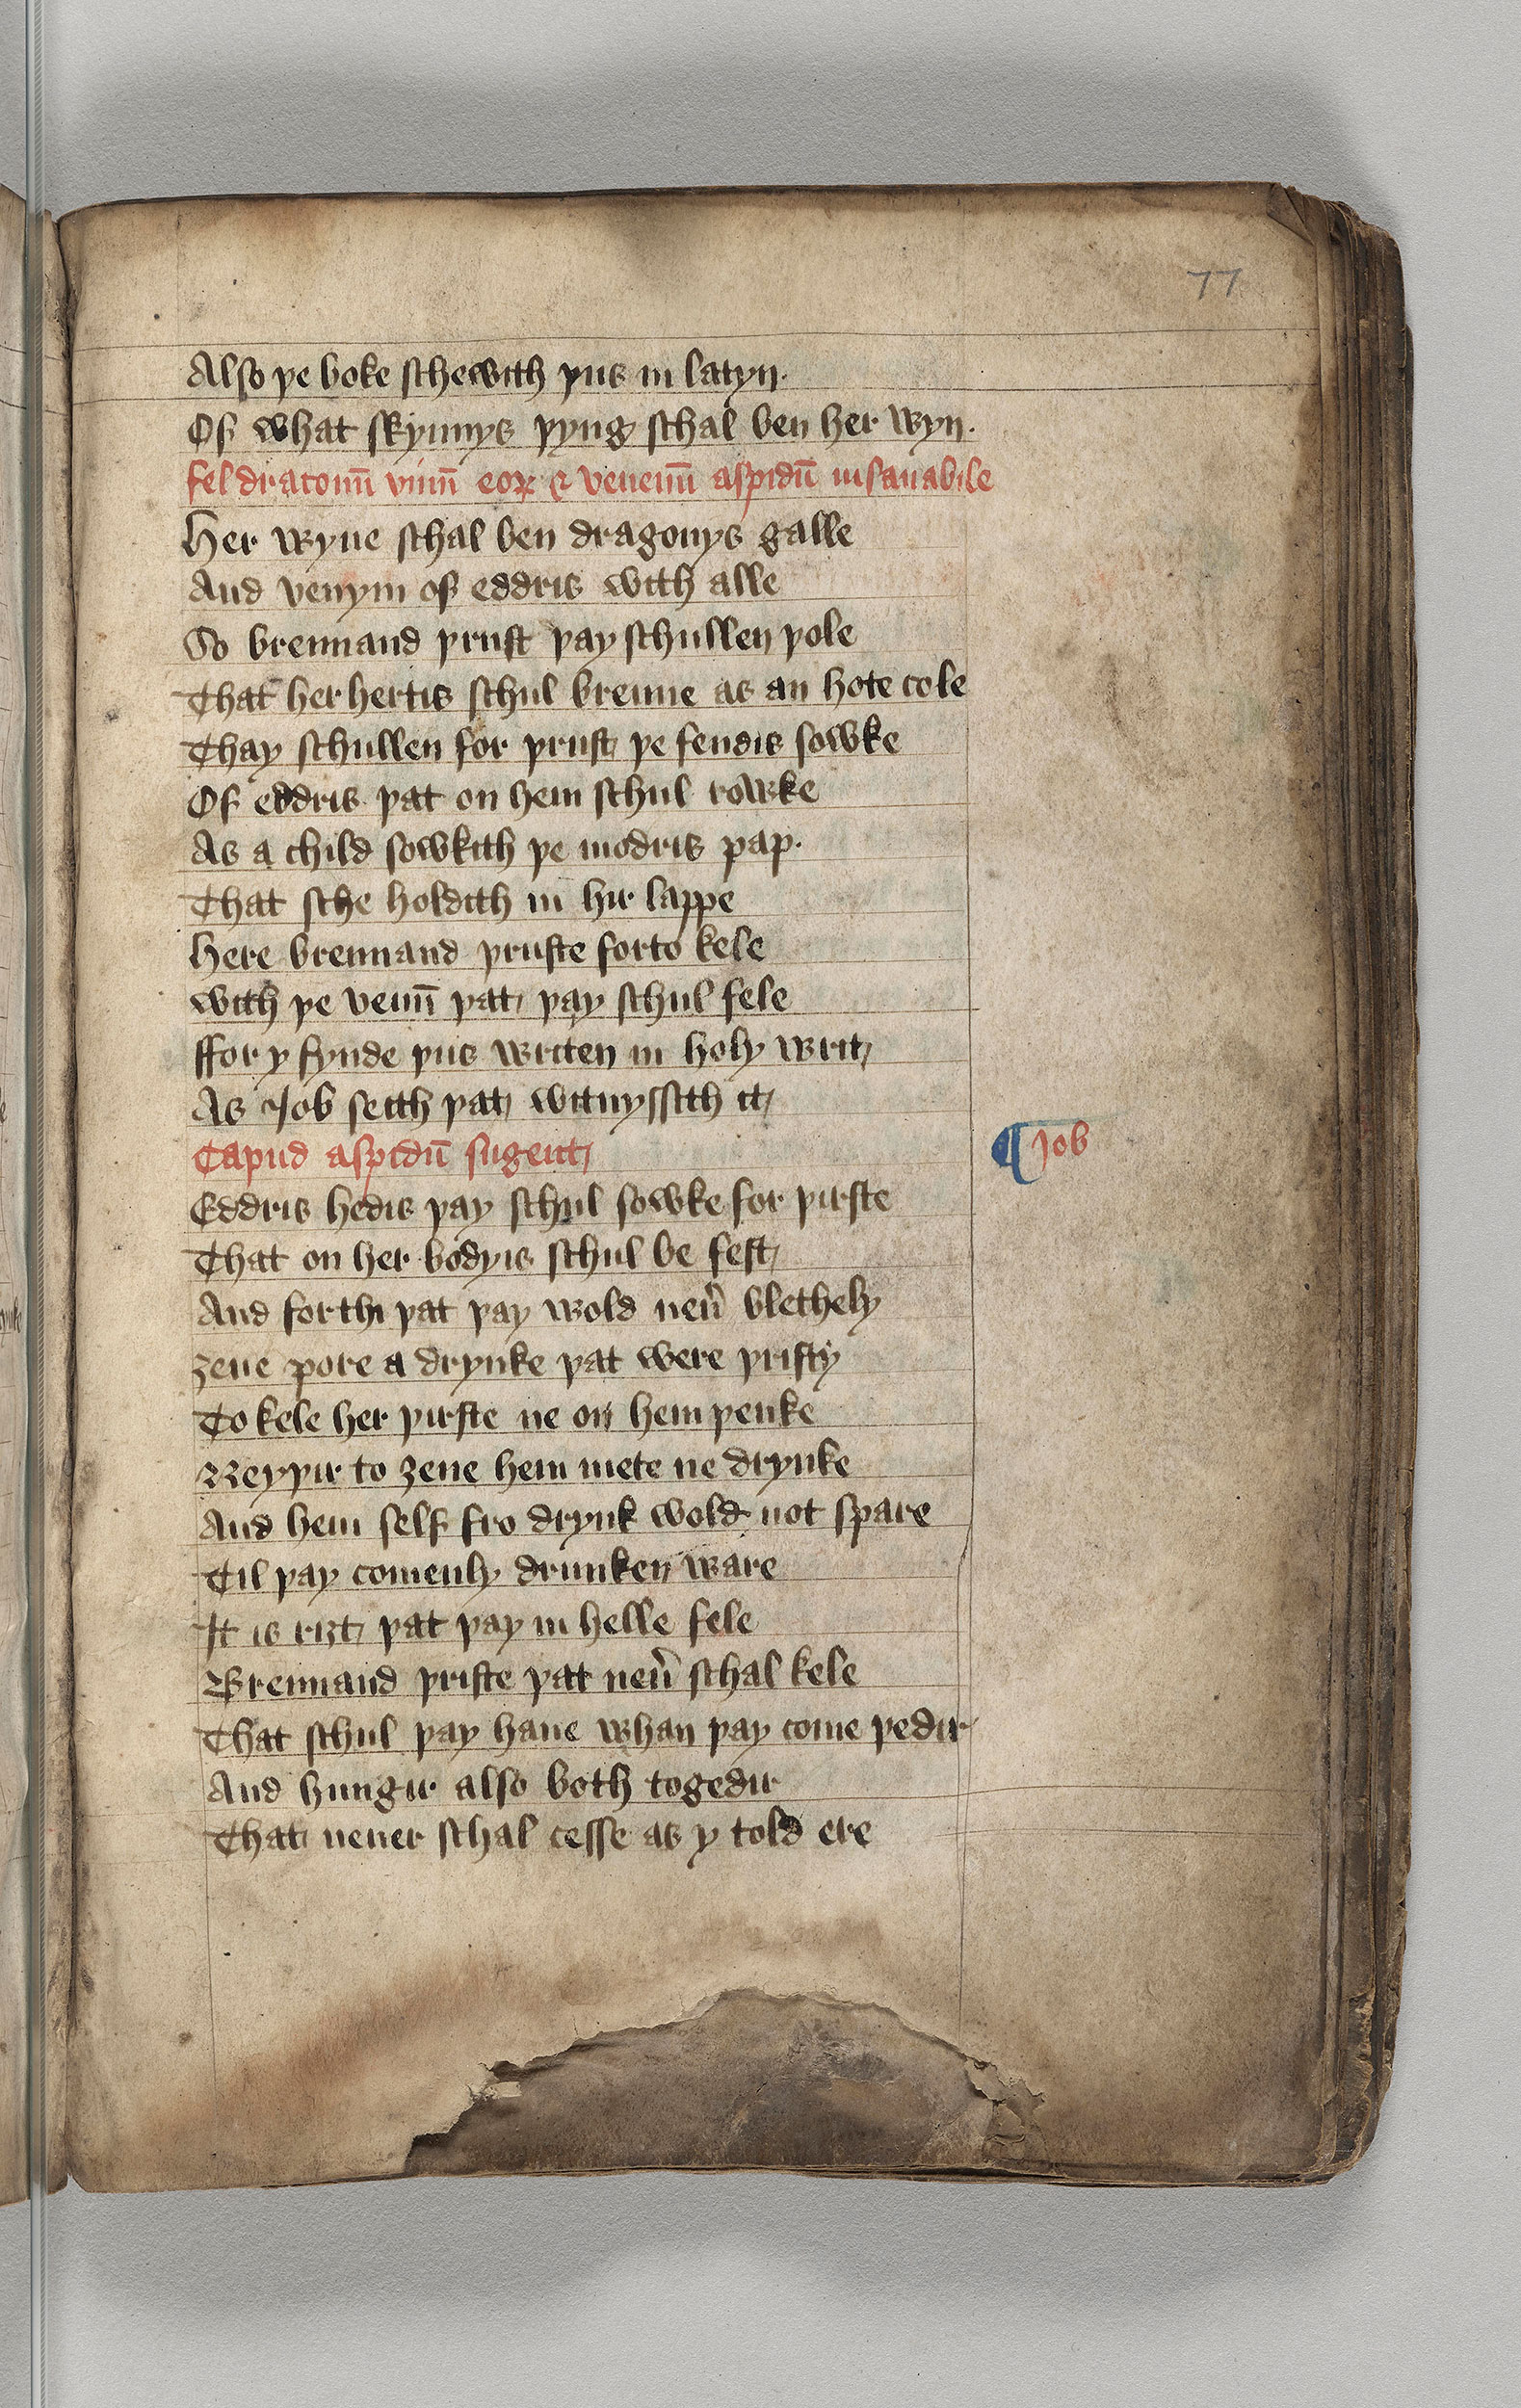 77
Also þe boke schewith þus in latyn.
Of what skynnys þyng schal ben her wyn.
fel draconū vinū eoꝝ & venenū aspidū insanabile
Her wyne schal ben dragonys galle
And venym of eddris with alle
So brennand þrust þay schullen þole
That her hertis schul brenne as an hote cole
Thay schullen for þrust þe fendis sowke
Of eddris þat on hem schul rowke
As a child sowkith þe modris pap.
That sche holdith in hir lappe
Here brennand þruste forto kele
with þe venī þat þay schul fele
ffor y fynde þus writen in holy writ
As Job seith þat witnyssith it
Capud aspidū sugent
¶ Job
Eddris hedis þay schul sowke for þirste
That on her bodyis schul be fest
And forthi þat þay wold neu̾ blethely
ȝeue pore a drynke þat were þristy
To kele her þirste ne on hem þenke
Neyþir to ȝeue hem mete ne drynke
And hem self fro drynk wold not spare
Til þay comenly drunken ware
It is riȝt þat þay in helle fele
Brennand þriste þat neu̾ schal kele
That schul þay haue whan þay come þedir
And hungir also both togedir
That neuer schal cesse as y told ere